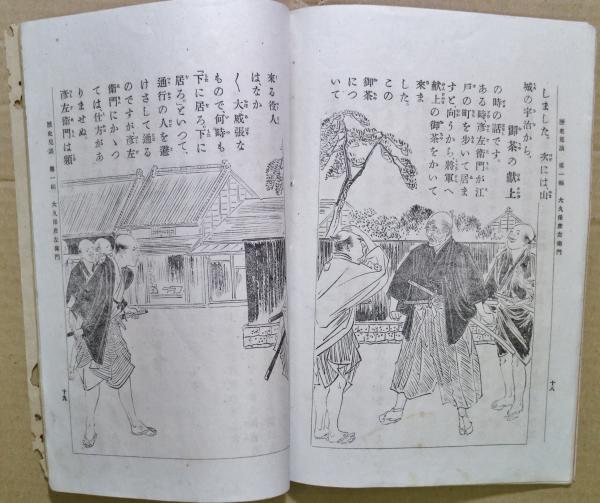 歴史見話 第一輯 大久保彦左衛門
十八
しました。次には山
城の宇治から、
御茶の獻上
の時の話です。
ある時彦左衛門が江
戸の町を歩いて居ま
すと向うから將軍へ
獻上の御茶をかいて
來ま
した。
この
御茶
につ
いて
來る役人
はなか
〱大威張な
もので何時も
『下に居ろ、下に
居ろ。』といつて、
通行の人を避
けさして通る
のですが彦左
衛門にかゝつ
ては仕方があ
りませぬ。
彦左衛門は頷
歴史見話 第一輯 大久保彦左衛門
十九